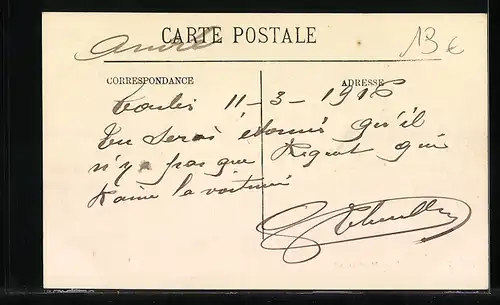 CARTE POSTALE
André
13 €
CORRESPONDANCE
ADRESSE
11-3-1916
Tu serais étonné qu'il
n'y a pas que qui
la voiture